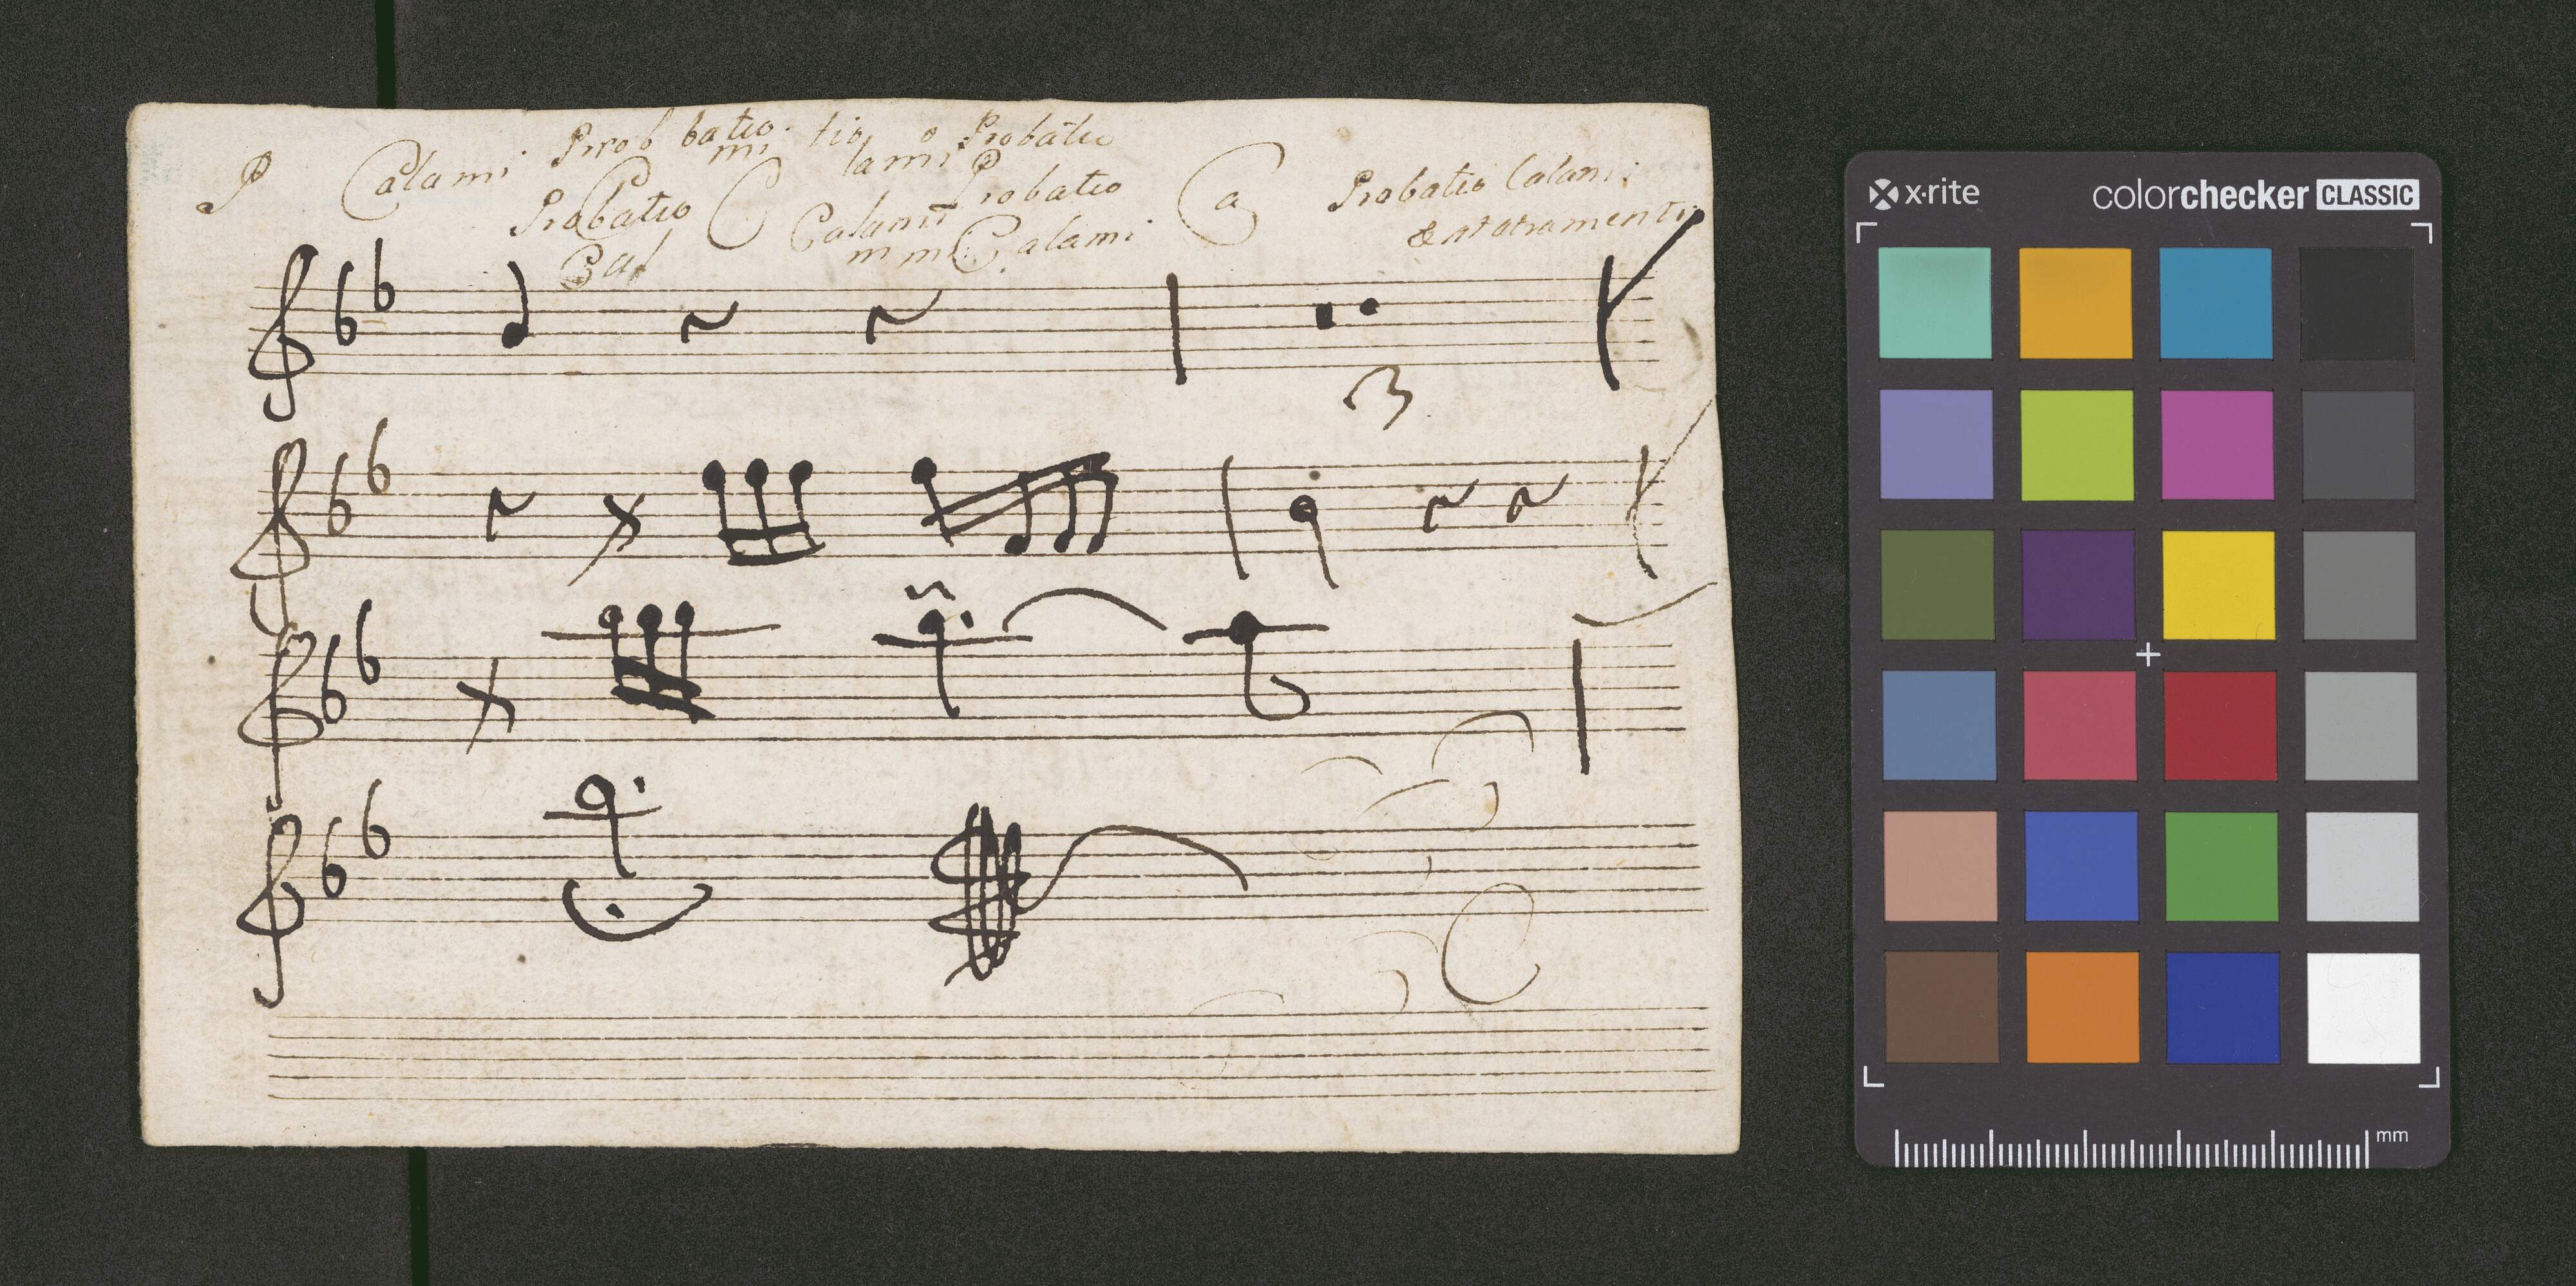 P Calami Prob batio. tio o Probatio
mi lami P
Probatio C Calami robatio Ca Probatio Calami
Cal m m Calami & atramenti
3
x·rite colorchecker CLASSIC
mm